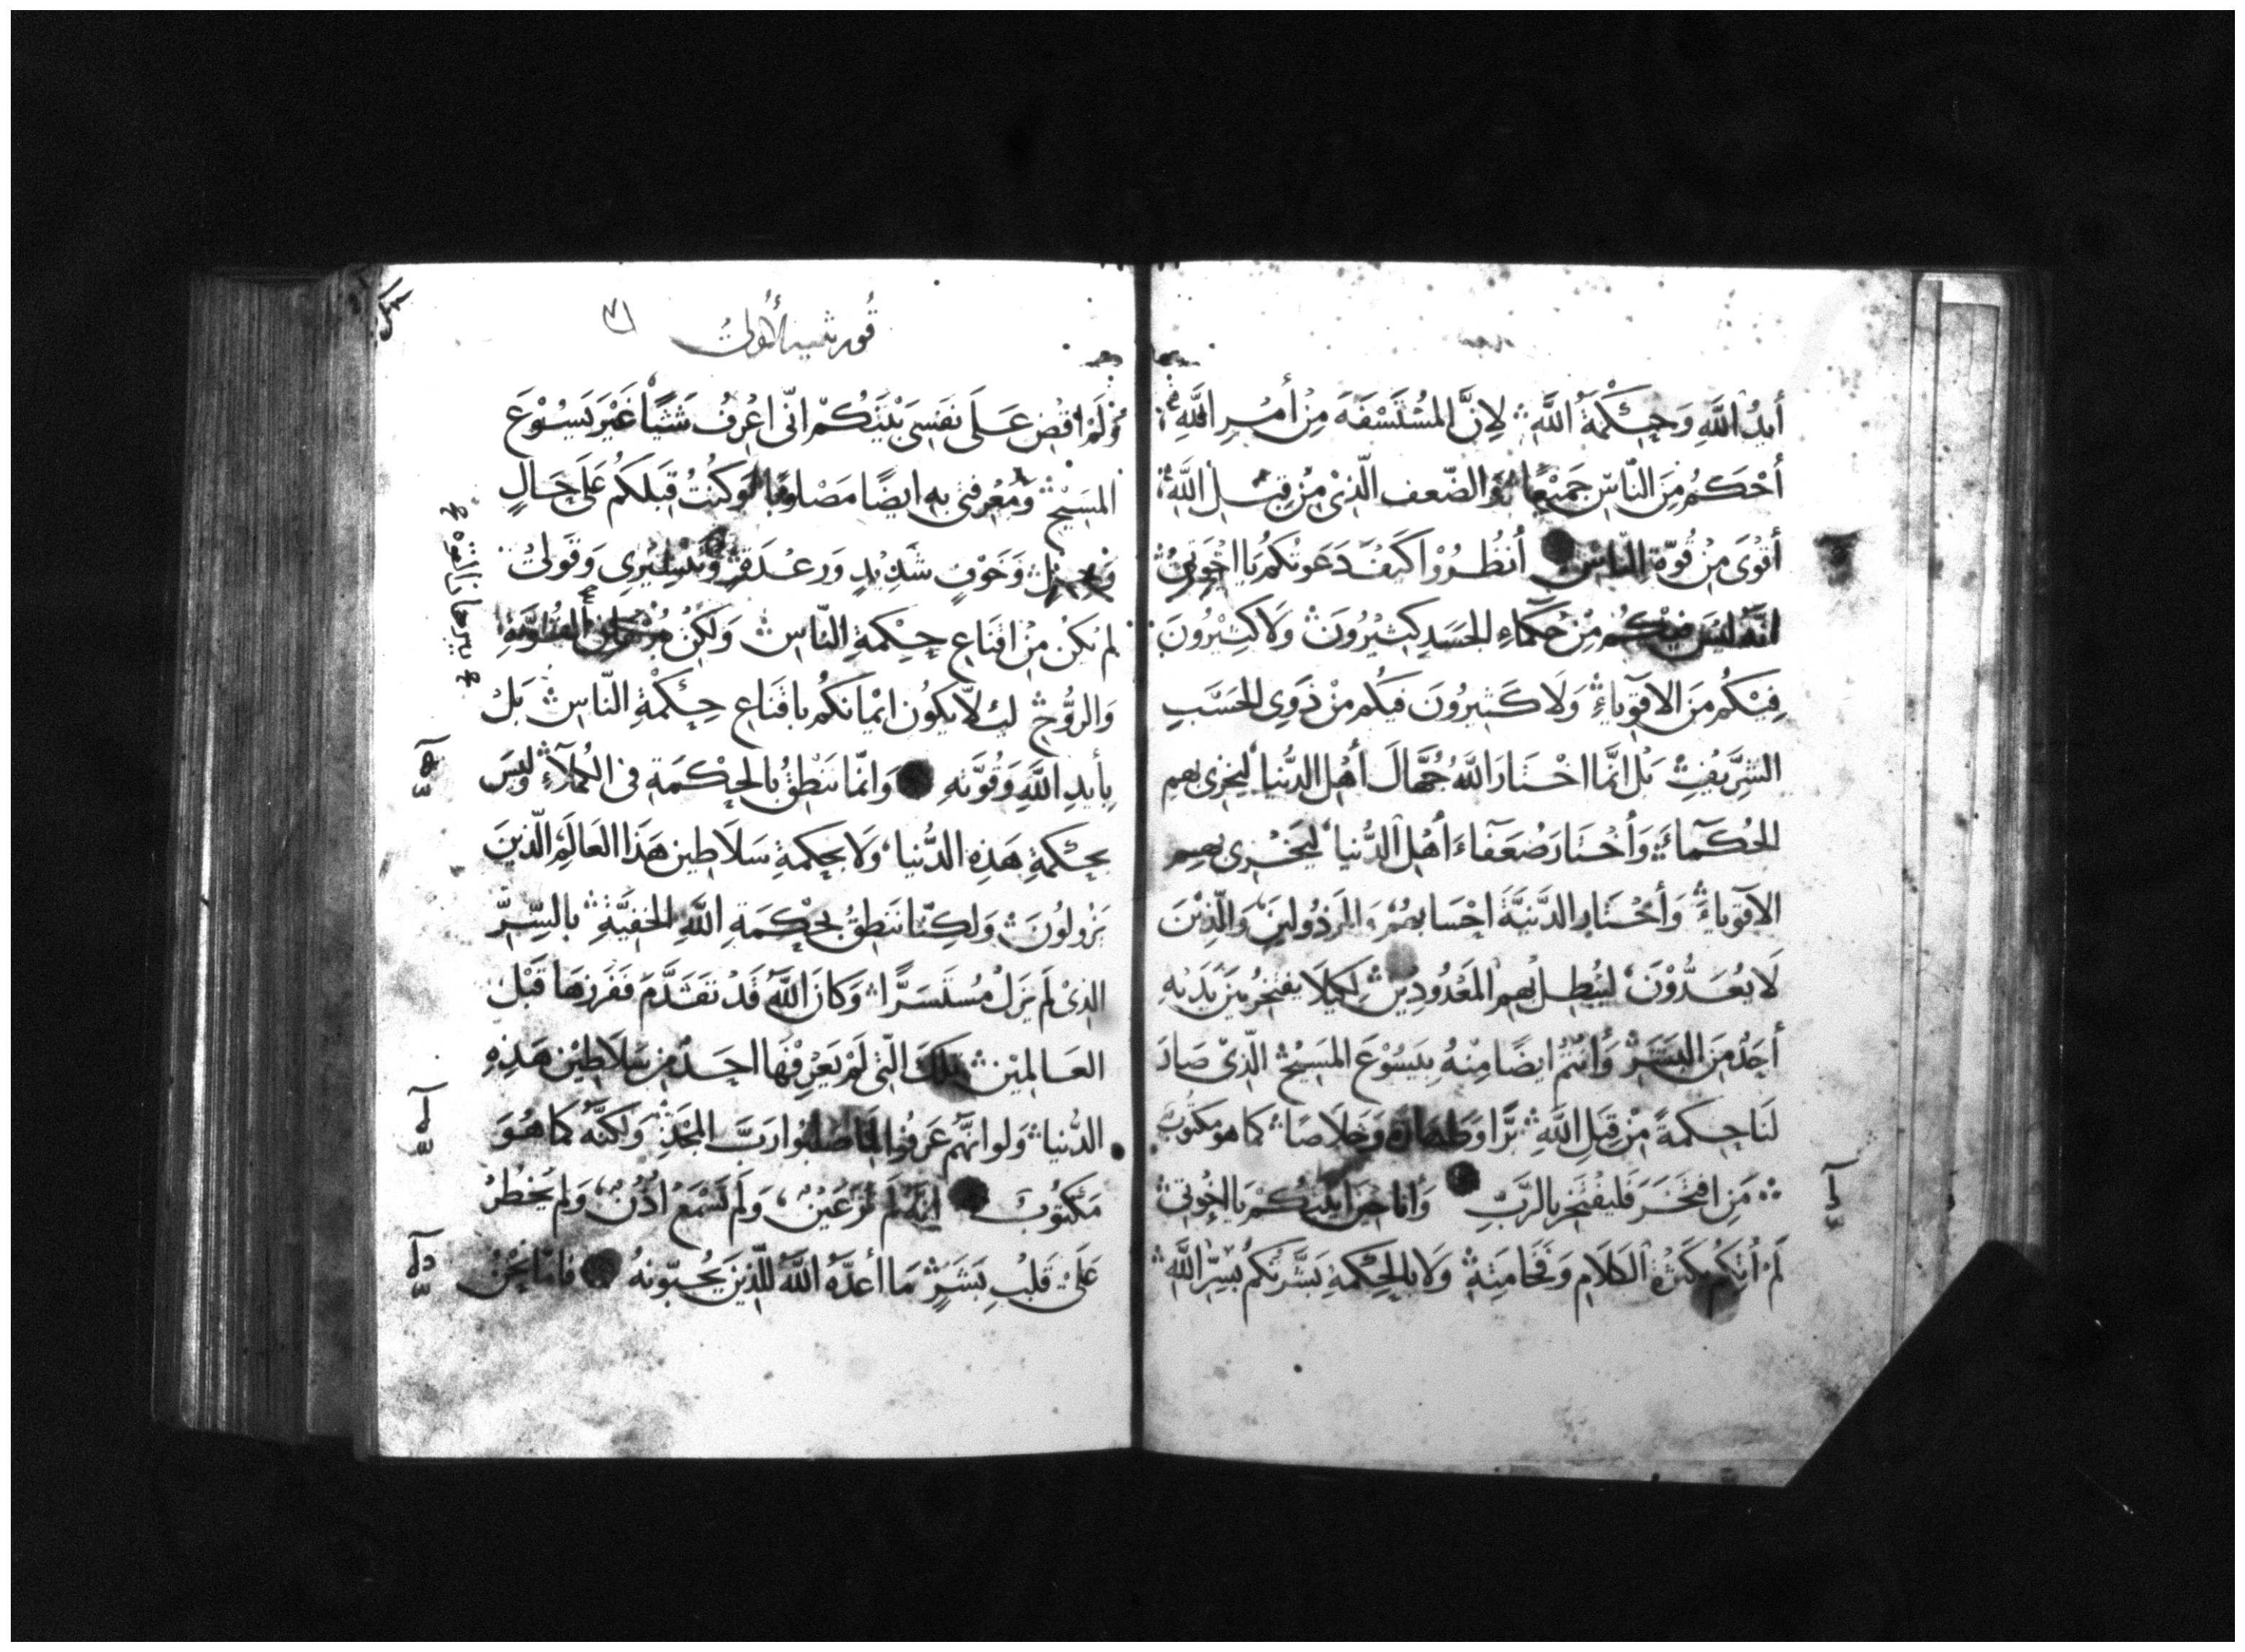 أيدُ اللَّهِ وَحِكْمَةُ اللَّهِ لِانَّ المُسْتَسْفَهَ مِنْ أمْرِ اللَّهِ
أحْكَمُ مِنَ النَّاسِ جَمِيْعًا وَالضّعف الَّذِيْ مِنْ قِبَلِ اللَّهِ
أقْوَى مِنْ قُوّةِ النّاسِ أنظُرُوْا كَيفَ دَعوتُكُم يَا اخْوَتِيْ
انَّهُ لَيْسَ فِيْكُم مِنْ حُكَمَاءِ الجَسَدِ كَثِيْرُونَ وَلَا كَثِيْرُونَ
فِيْكُم مِنَ الاقوِيَاءِ وَلَا كَثِيرُونَ فيكُم مِنْ ذَوِي الحَسَبِ
الشَّرِيفِ بَل انَّمَا اخْتَارَ اللَّهُ جُهَّالَ أهْلِ الدُّنيَا ليُخزِى بهِم
الحُكَمَاءَ وَأخْتَارَ ضُعَفَاءَ أهْلِ الدُّنيَا ليَخْزِى بهِم
الاقوِيَاءَ وَأخْتَارَ الدَّنِيَّةَ احْسَابهُمْ وَالمَرذُولينَ وَالَّذِيْنَ
لَا يُعَدُّوْنَ ليُبْطِلَ بهِم المَعْدُودِيْنَ لِكَيلَا يفتَخِرُ بيْنَ يَدَيْهِ
أحَدٌ مِنَ البَشَرِ وَأنتُم ايضًا مِنْهُ بِيَسُوْعَ المَسِيْحِ الّذِىْ صَارَ
لَنَا حِكمَةً مِنْ قِبَلِ اللَّهِ بِرًّا وَطَهَارَةً وَخَلَاصًا كمَا هو مَكتُوبٌ
مَنِ افتَخَرَ فَليَفْتَخِر بالرَّبِّ وَأنَا حِيْنَ اتَيْتُكُمْ يَا اخُوَتِيْ
لَمْ أتِكُم بكَثرَةِ الكَلَامِ وَفَخَامَتِهِ وَلَا بالحِكْمَةِ بَشَّرتكُم بِسِرِّ اللَّهِ
قورنثيه الأولى
وَلَمْ اقضِ عَلَى نَفسِى بَيْنَكُمْ انّى اعْرِفُ شَيْئًا غَيْرَ يَسُوْعَ
المَسِيْحِ وَمَعْرِفتى بهِ ايضًا مَصْلوبًا وَكُنْتُ قِبَلَكُم عَلَى حَالِ
وَخَوْفٍ شَدِيْدٍ وَرعْدَةٍ وَقَولِيْ
لم يَكُنْ مِنْ اقنَاعِ حِكْمَةِ النّاسِ وَلكِنْ القُوَّةِ
وَالرُّوْحِ لئلَّا يَكُون ايْمَانكُم باقنَاعِ حِكْمَةِ النّاسِ بَلْ
بِأيدِ اللَّهِ وَقُوَّتهِ وَانَّمَا نَنْطِقُ بالحِكْمَةِ فى الكُمَلَاءِ وَلَيْسَ
بحِكمَةِ هَذِهِ الدُّنيَا وَلَا بحِكمَةِ سَلَاطِين هَذَا العَالَمِ الَّذِينَ
يَزُولُونَ وَلَكِنَّا نَنطِقُ بحِكْمَةِ اللَّهِ الخَفِيَّةِ بالسِّرِّ
الذِىْ لَم يَزَلْ مُستَسَرًّا وَكَانَ اللَّهُ قَدْ تَقَدَّمَ فَفَرَزهَا قَبْلَ
العَالَمِيْنَ تِلكَ الّتِى لَم يَعْرِفْهَا احَدٌ مِنْ سَلَاطِيْن هَذِهِ
الدُّنيَا وَلَو انَّهُم عَرَفُوهَا لمَا صَلَبُوا رَبَّ المَجْدِ وَلَكنَّهُ كمَا هُوَ
مَكتُوْبٌ انَّهُ لَم تَرَ عَيْنٌ وَلَم تَسْمَعْ اذُنٌ وَلَم يَخْطُرْ
عَلَىْ قَلْبِ بَشَرٍ مَا أعدَّهُ اللَّهُ للّذِينَ يُحِبّونَهُ فَامَّا نَحْنُ